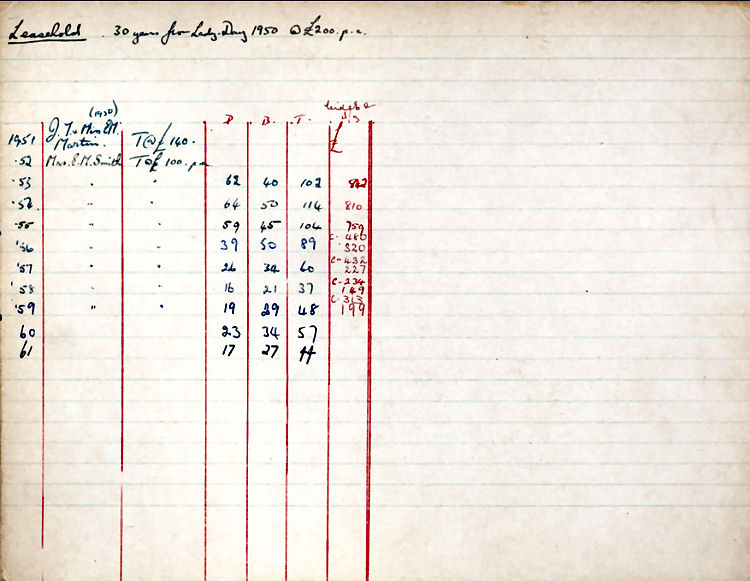 Leasehold 30 years from Lady-Day 1950 @ £200. p.a.
(1950)
D B. T. £
1951 J. T. & Mrs E.M. Martin. T@£ 140.
'52 Mrs. E. M. Smith T@£ 100. p.a
'53 " " 62 40 102
'54. " " 64 50 114 810
'55 " " 59 45 104 759
'56 " " 39 50 89 C- 480 320
'57 " " 26 34 60 C-432 227
'58 " " 16 21 37 C-234 149
'59 " " 19 29 48 C-313 199
60 23 34 57
61 17 27 44